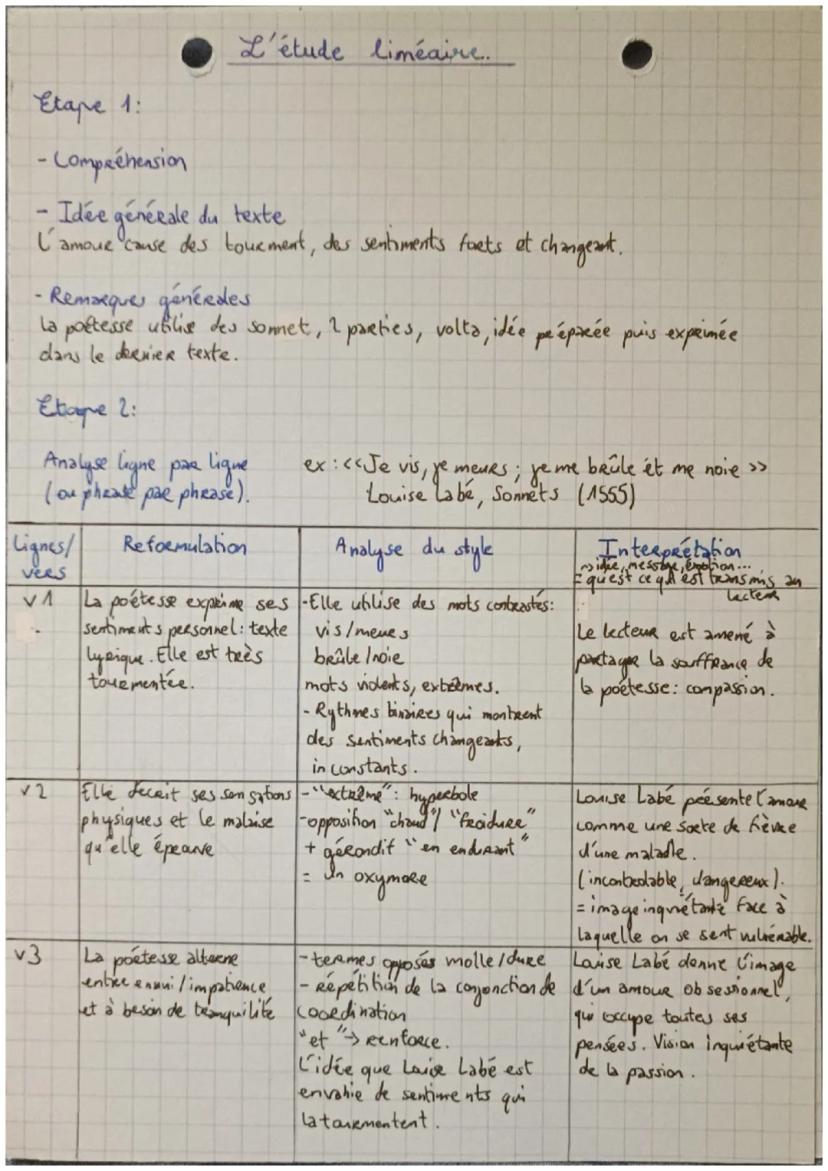 L'étude linéaire.
Etape 1:
- Compréhension
- Idée générale du texte
L'amour cause des tourment, des sentiments forts et changeant.
- Remarques générales
La poétesse utilise des sonnet, 2 parties, volta, idée préparée puis exprimée
dans le dernier texte.
Etape 2:
Analyse ligne par ligne
(ou phrase par phrase).
ex : <<Je vis, je meurs ; je me brûle et me noie >>
Louise Labé, Sonnets (1555)
Lignes/
vers
Reformulation
Analyse du style
Interprétation
→ idée, message, émotion...
= qu'est ce qui est transmis au
lecteur
v1
La poétesse exprime ses
sentiments personnel: texte
lyrique. Elle est très
tourmentée.
- Elle utilise des mots contrastés:
vis/meurs
brûle/noie
mots violents, extrêmes.
- Rythmes binaires qui montrent
des sentiments changeants,
inconstants.
Le lecteur est amené à
partager la souffrance de
la poétesse: compassion.
v2
Elle decrit ses sensations
physiques et le malaise
qu'elle éprouve
- "extrême": hyperbole
- opposition "chaud"/ "froidure"
+ gérondif "en endurant"
= un oxymore
Louise Labé présente l'amour
comme une sorte de fièvre
d'une maladie.
(incontrolable, dangereux).
= image inquiétante face à
laquelle on se sent vulnérable.
v3
La poétesse alterne
entre ennui / impatience
et à besoin de tranquilité
- termes opposés molle/dure
- répétition de la conjonction de
coordination
"et" → renforce.
L'idée que Louise Labé est
envahie de sentiments qui
la tourmentent.
Louise Labé donne l'image
d'un amour obsessionnel,
qui occupe toutes ses
pensées. Vision inquiétante
de la passion.